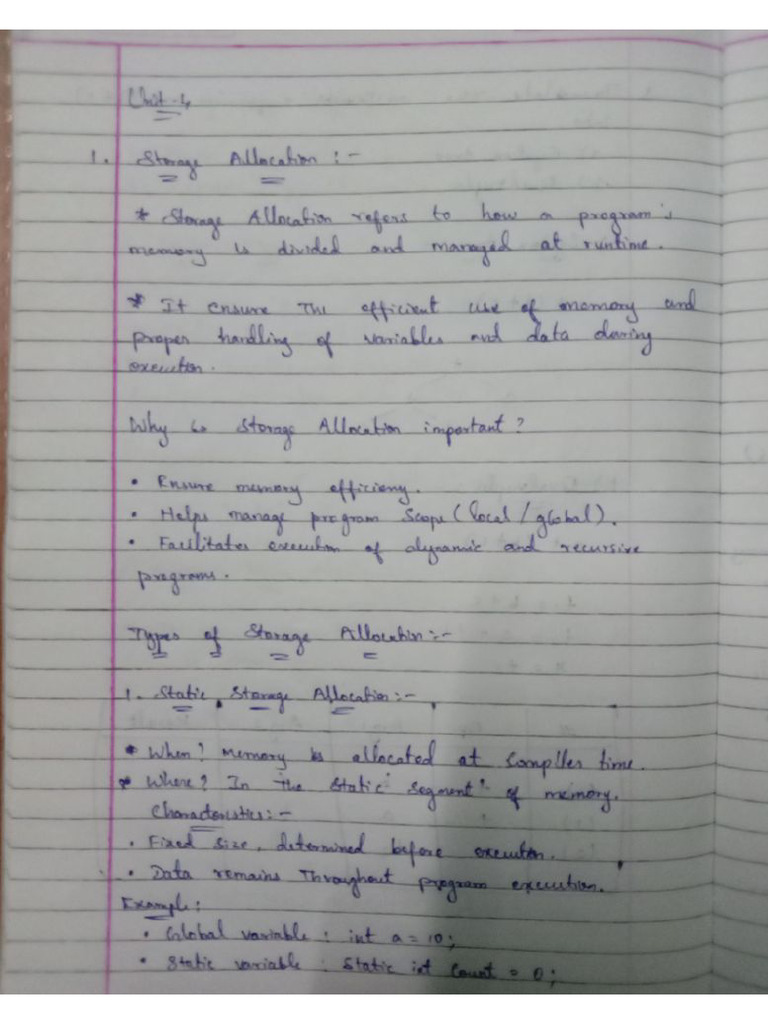 Unit-4
1. Storage Allocation :-
* Storage Allocation refers to how a program's
memory is divided and managed at runtime.
* It ensure The efficient use of memory and
proper handling of variables and data during
execution.
Why is Storage Allocation important?
• Ensure memory efficieny.
• Helps manage program Scope (local / global).
• Facilitates execution of dynamic and recursive
programs.
Types of Storage Allocation :-
1. Static Storage Allocation :-
* When? Memory is allocated at Compiler time.
* Where? In the static segment of memory.
Characteristics :-
• Fixed size, determined before execution.
• Data remains Throughout program execution.
Example :
• Global variable : int a = 10;
• Static variable : Static int Count = 0;